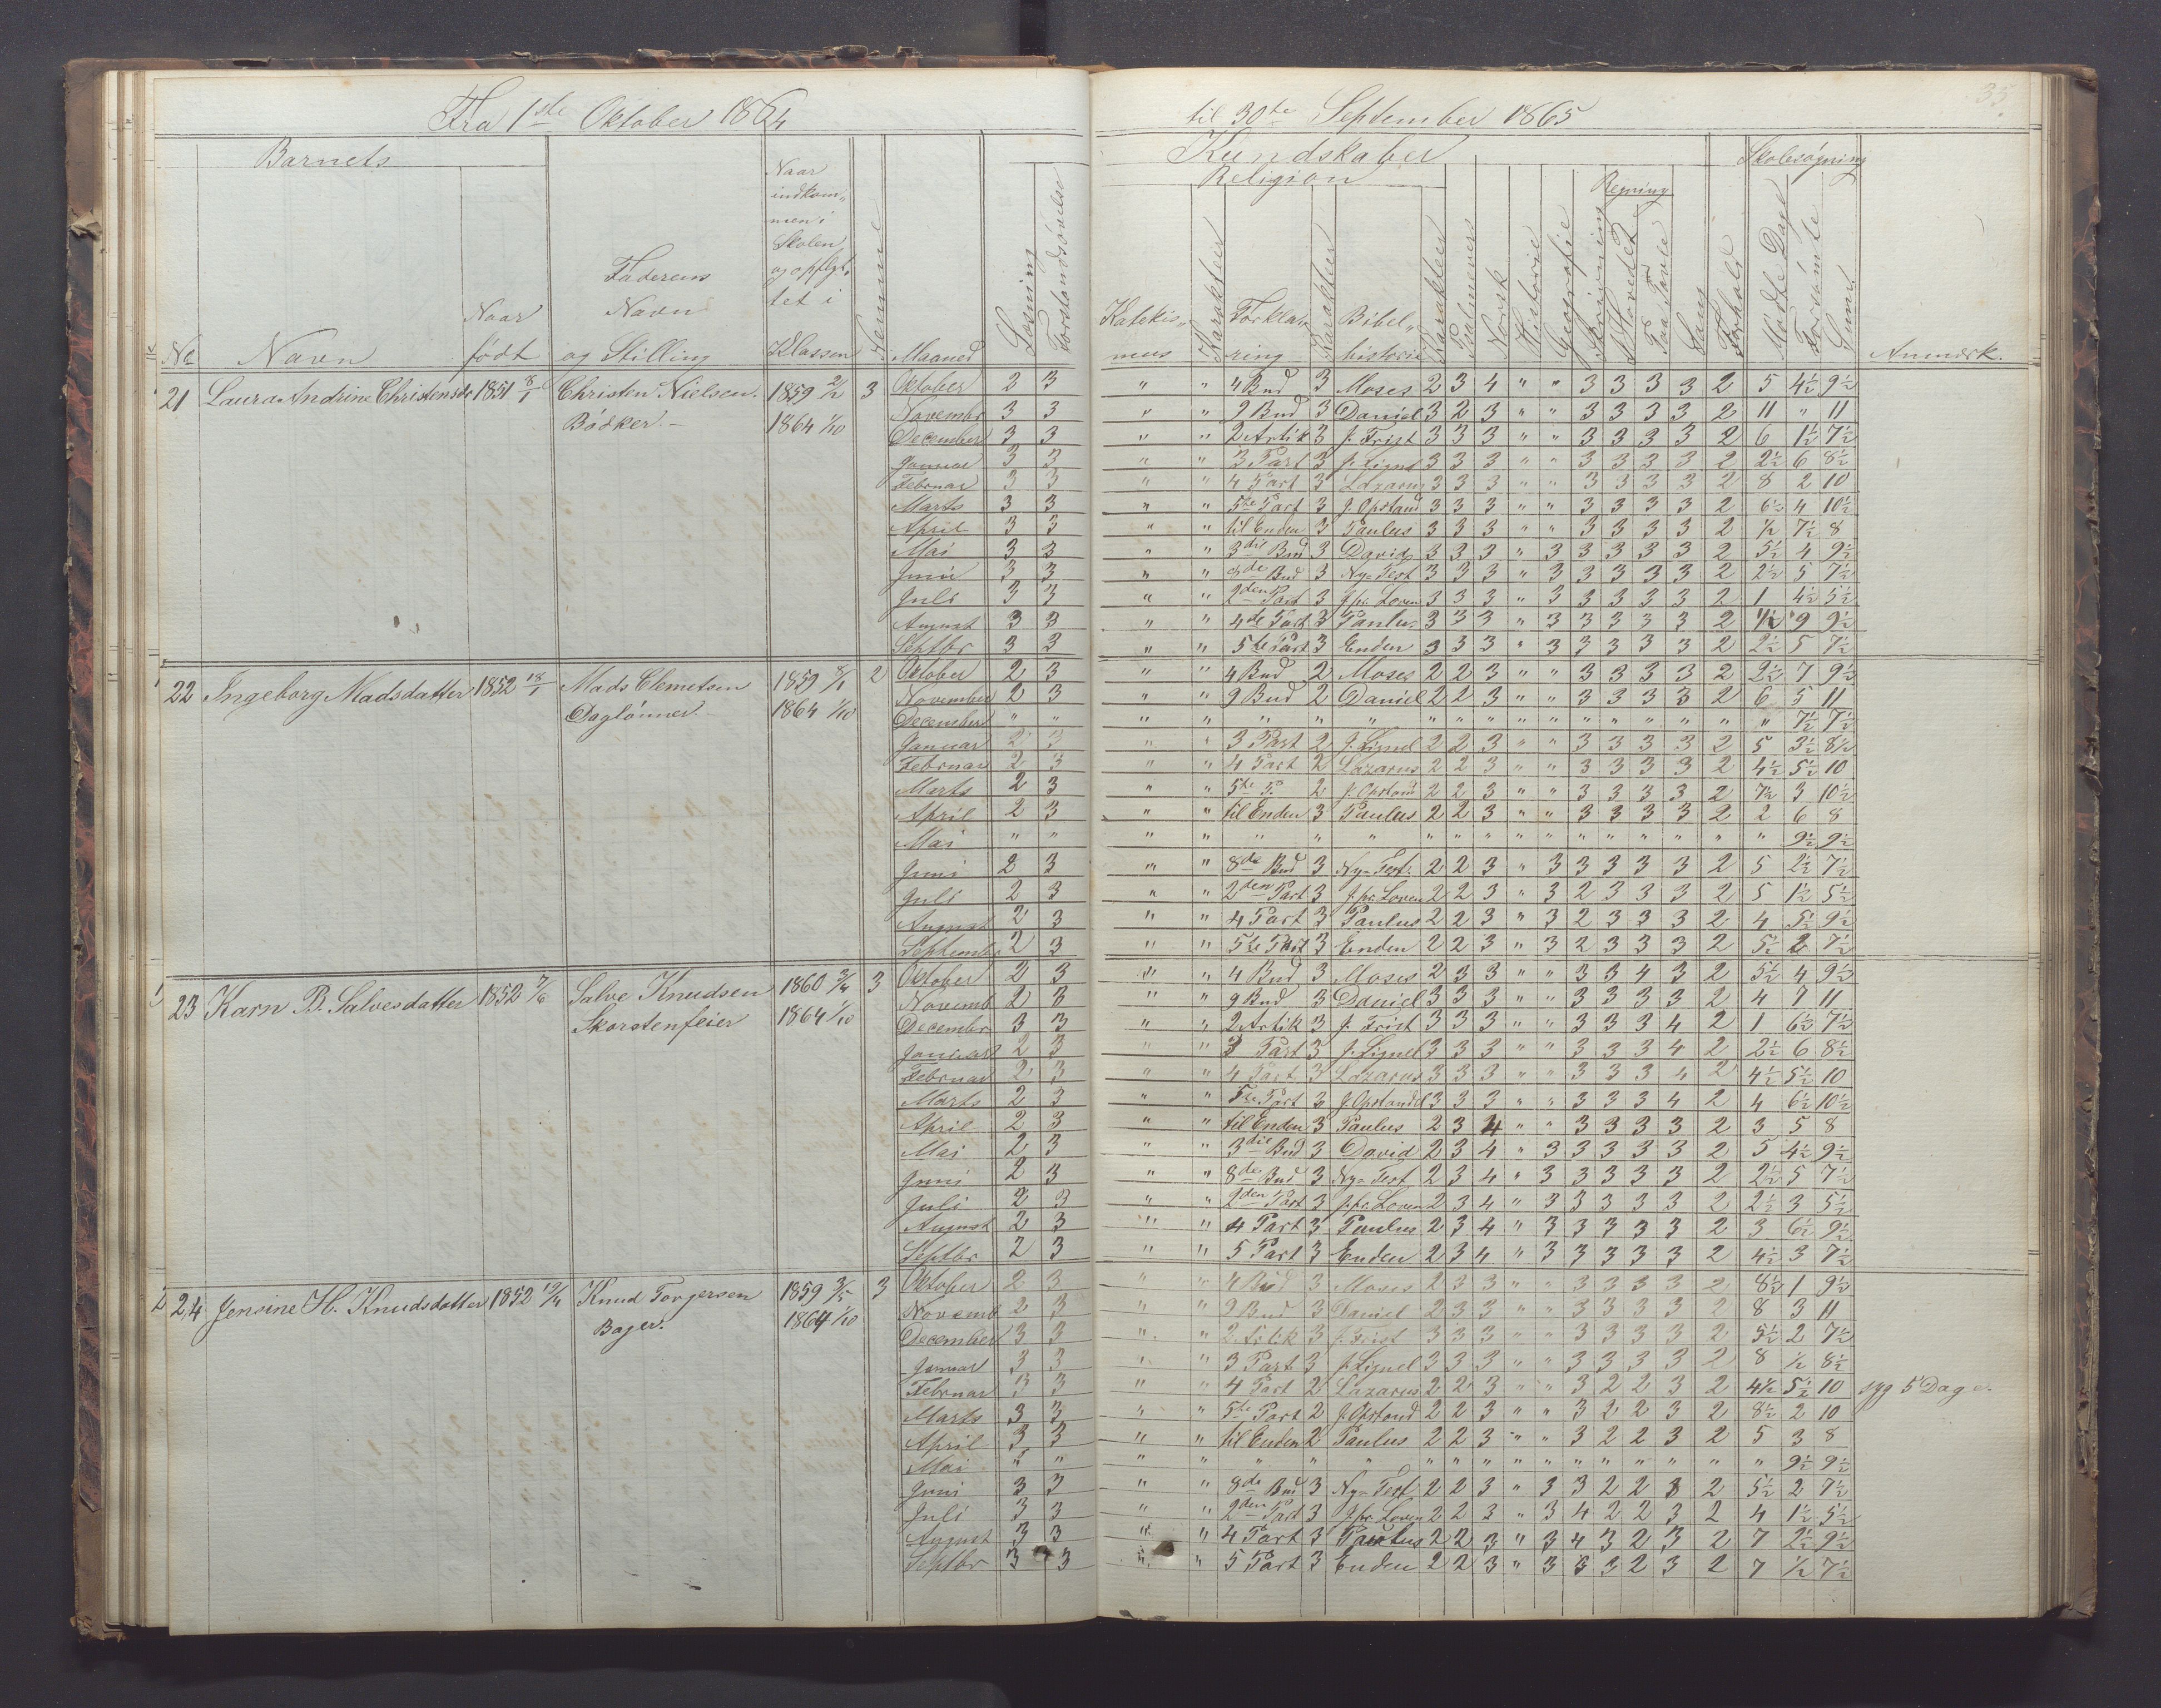 Fra 1ste Oktober 1864 til 30te September 1865
35
Barnets
Kundskaber
Skolesøgning
Religion
Regning
No Navn Naar født Faderens Navn og Stilling Naar indkommen i Skolen og opflyttet i Klassen Evne Maaned Læsning Forstandsøvelse Katekismus Karakter Forklaring Karakter Bibelhistorie Karakter Psalmevers Norsk Historie Geografie Skrivning I Hovedet Paa Tavle Sang Forhold Mødte Dage Forsømte Summa Anmærk.
21 Laura Andrine Christensdr 1851 8/1 Christen Nielsen. 1859 2/12 3 Oktober 2 3 " " 4 Bud 3 Moses 2 3 4 " " 3 3 3 3 2 5 4½ 9½
Bødker. 1864 1/10 Novembr 3 3 " " 9 Bud 3 Daniel 3 2 3 " " 3 3 3 3 2 11 " 11
December 3 3 " " 2 Artik 3 J. Frist 3 3 3 " " 3 3 3 3 2 6 1½ 7½
Januar 3 3 " " 3 Part 3 J. Lignel 3 3 3 " " 3 3 3 3 2 2½ 6 8½
Februar 3 3 " " 4 Part 3 Lazarus 3 3 3 " " 3 3 3 3 2 8 2 10
Marts 3 3 " " 5te Part 3 J. Opstand 3 3 3 " " 3 3 3 3 2 6½ 4 10½
April 3 3 " " til Enden 3 Paulus 3 3 3 " " 3 3 3 3 2 ½ 7½ 8
Mai 3 3 " " 3die Bud 3 David 3 3 3 " 3 3 3 3 3 2 5½ 4 9½
Juni 3 3 " " 8de Bud 3 Ny-Test 3 3 3 " 3 3 3 3 3 2 2½ 5 7½
Juli 3 3 " " 2den Part 3 J. fr. Loven 3 3 3 " 3 3 3 3 3 2 1 4½ 5½
August 3 3 " " 4de Part 3 Paulus 3 3 3 " 3 3 3 3 3 2 ½ 9 9½
Septbr 3 3 " " 5te Part 3 Enden 3 3 3 " 3 3 3 3 3 2 2½ 5 7½
22 Ingeborg Madsdatter 1852 18/1 Mads Clemetsen 1859 8/1 2 Oktober 2 3 " " 4 Bud 2 Moses 2 2 3 " " 3 3 3 3 2 2½ 7 9½
Daglønner 1864 1/10 November 2 3 " " 9 Bud 2 Daniel 2 2 3 " " 3 3 3 3 2 6 5 11
December " " " " " " " " " " " " " " " " " " 7½ 7½
Januar 2 3 " " 3 Part 2 J. Lignel 2 2 3 " " 3 3 3 3 2 5 3½ 8½
Februar 2 3 " " 4 Part 2 Lazarus 2 2 3 " " 3 3 3 3 2 4½ 5½ 10
Marts 2 3 " " 5te P. 2 J. Opstand 2 2 3 " " 3 3 3 3 2 7½ 3 10½
April 2 3 " " til Enden 3 Paulus 2 2 3 " " 3 3 3 3 2 2 6 8
Mai " " " " " " " " " " " " " " " " " " 9½ 9½
Juni 2 3 " " 8de Bud 3 Ny-Test. 2 2 3 " 3 3 3 3 3 2 5 2½ 7½
Juli 2 3 " " 2den Part 3 J. fr. Loven 2 2 3 " 3 2 3 3 3 2 5 1½ 5½
August 2 3 " " 4 Part 3 Paulus 2 2 3 " 3 2 3 3 3 2 4 5½ 9½
September 2 3 " " 5te Part 3 Enden 2 2 3 " 3 2 3 3 3 2 5½ 2 7½
23 Karn B. Salvesdatter 1852 7/6 Salve Knudsen 1860 2/4 3 Oktober 2 3 " " 4 Bud 3 Moses 2 3 3 " " 3 3 4 3 2 5½ 4 9½
Skorstenfeier 1864 1/10 Novemb 2 3 " " 9 Bud 3 Daniel 3 3 3 " " 3 3 3 3 2 4 7 11
Decembr 3 3 " " 2 Artik 3 J. Frist 3 3 3 " " 3 3 3 4 2 1 6½ 7½
Januar 2 3 " " 3 Part 3 J. Lignel 3 3 3 " " 3 3 3 4 2 2½ 6 8½
Februar 2 3 " " 4 Part 3 Lazarus 3 3 3 " " 3 3 3 4 2 4½ 5½ 10
Marts 2 3 " " 5te Part 3 J. Opstandel 3 3 3 " " 3 3 3 4 2 4 6½ 10½
April 2 3 " " til Enden 3 Paulus 2 3 4 " " 3 3 3 3 2 3 5 8
Mai 2 3 " " 3die Bud 3 David 2 3 4 " 3 3 3 3 3 2 5 4½ 9½
Juni 2 3 " " 8de Bud 3 Ny-Test 2 3 4 " 3 3 3 3 3 2 2½ 5 7½
Juli 2 3 " " 2den Part 3 J. fr. Loven 2 3 4 " 3 3 3 3 3 2 2½ 3 5½
August 2 3 " " 4 Part 3 Paulus 2 3 4 " 3 3 3 3 3 2 3 6½ 9½
Septbr 2 3 " " 5 Part 3 Enden 2 3 4 " 3 3 3 3 3 2 4½ 3 7½
24 Jensine H. Knudsdatter 1852 19/4 Knud Torgersen 1859 3/5 3 Oktober 2 3 " " 4 Bud 3 Moses 2 3 3 " " 3 3 3 3 2 8½ 1 9½
Bager. 1864 1/10 Novemb 2 3 " " 9 Bud 3 Daniel 2 3 3 " " 3 3 3 3 2 8 3 11
December 3 3 " " 2 Artik 3 J. Frist 3 3 3 " " 3 3 3 3 2 5½ 2 7½
Januar 3 3 " " 3 Part 3 J. Lignel 3 3 3 " " 3 3 3 3 2 8 ½ 8½
Februar 3 3 " " 4 Part 2 Lazarus 2 2 3 " " 3 2 2 3 2 4½ 5½ 10 syg 5 Dage.
Marts 3 3 " " 5te Part 2 J. Opstand 2 2 3 " " 3 2 2 3 2 8½ 2 10
April 3 3 " " til Enden 2 Paulus 2 2 3 " " 3 2 2 3 2 5 3 8
Mai " " " " " " " " " " " " " " " " " " 9½ 9½
Juni 3 3 " " 8de Bud 3 Ny-Test 2 2 3 " 3 3 2 2 3 2 5½ 2 7½
Juli 3 3 " " 2den Part 3 J. fr. Loven 2 2 3 " 3 4 2 2 3 2 4 1½ 5½
August 3 3 " " 4 Part 3 Paulus 2 2 3 " 3 4 3 2 3 2 7 2½ 9½
Septbr 3 3 " " 5 Part 3 Enden 2 2 3 " 3 3 3 2 3 2 7 ½ 7½